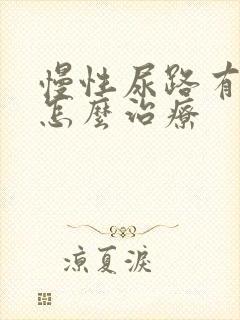 慢性尿路有
怎麼治療
凉夏淚